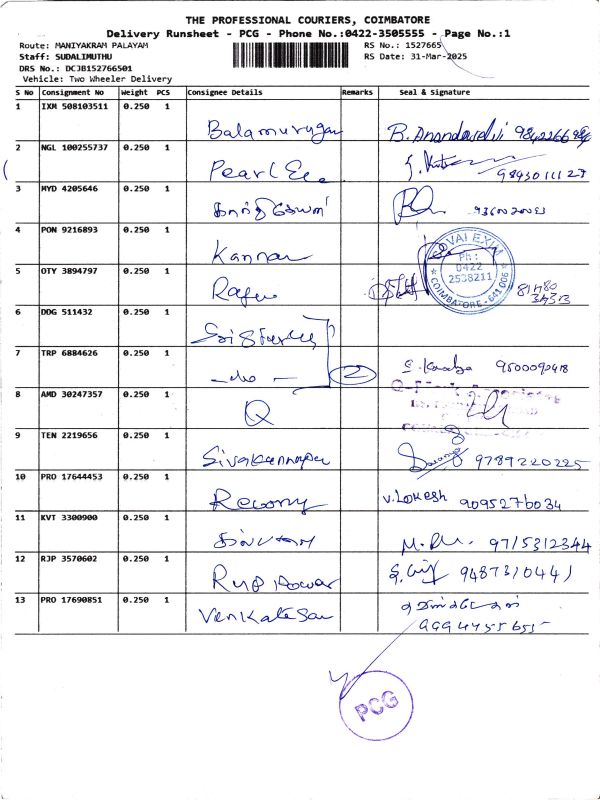 THE PROFESSIONAL COURIERS, COIMBATORE
Delivery Runsheet - PCG - Phone No.:0422-3505555 - Page No.:1
Route: MANIYAKRAM PALAYAM RS No.: 1527665
Staff: SUDALIMUTHU RS Date: 31-Mar-2025
DRS No.: DCJB152766501
Vehicle: Two Wheeler Delivery
S No Consignment No Weight PCS Consignee Details Remarks Seal & signature
1 IXM 508103511 0.250 1
Balamurugan B. Anandaselvi
2 NGL 100255737 0.250 1
Pearl
3 MYD 4205646 0.250 1
கார்த்திகேயன்
4 PON 9216893 0.250 1
Kannan
KOVAI EXIM
Ph :
0422
2538211
COIMBATORE - 641 006
5 OTY 3894797 0.250 1
6 DDG 511432 0.250 1
7 TRP 6884626 0.250 1
-do- 2 9500090418
8 AMD 30247357 0.250 1
Q
9 TEN 2219656 0.250 1
9789220225
10 PRO 17644453 0.250 1
V. Lokesh 9095276034
11 KVT 3300900 0.250 1
9715312344
12 RJP 3570602 0.250 1
9487310441
13 PRO 17690851 0.250 1
Venkatesan
PCG